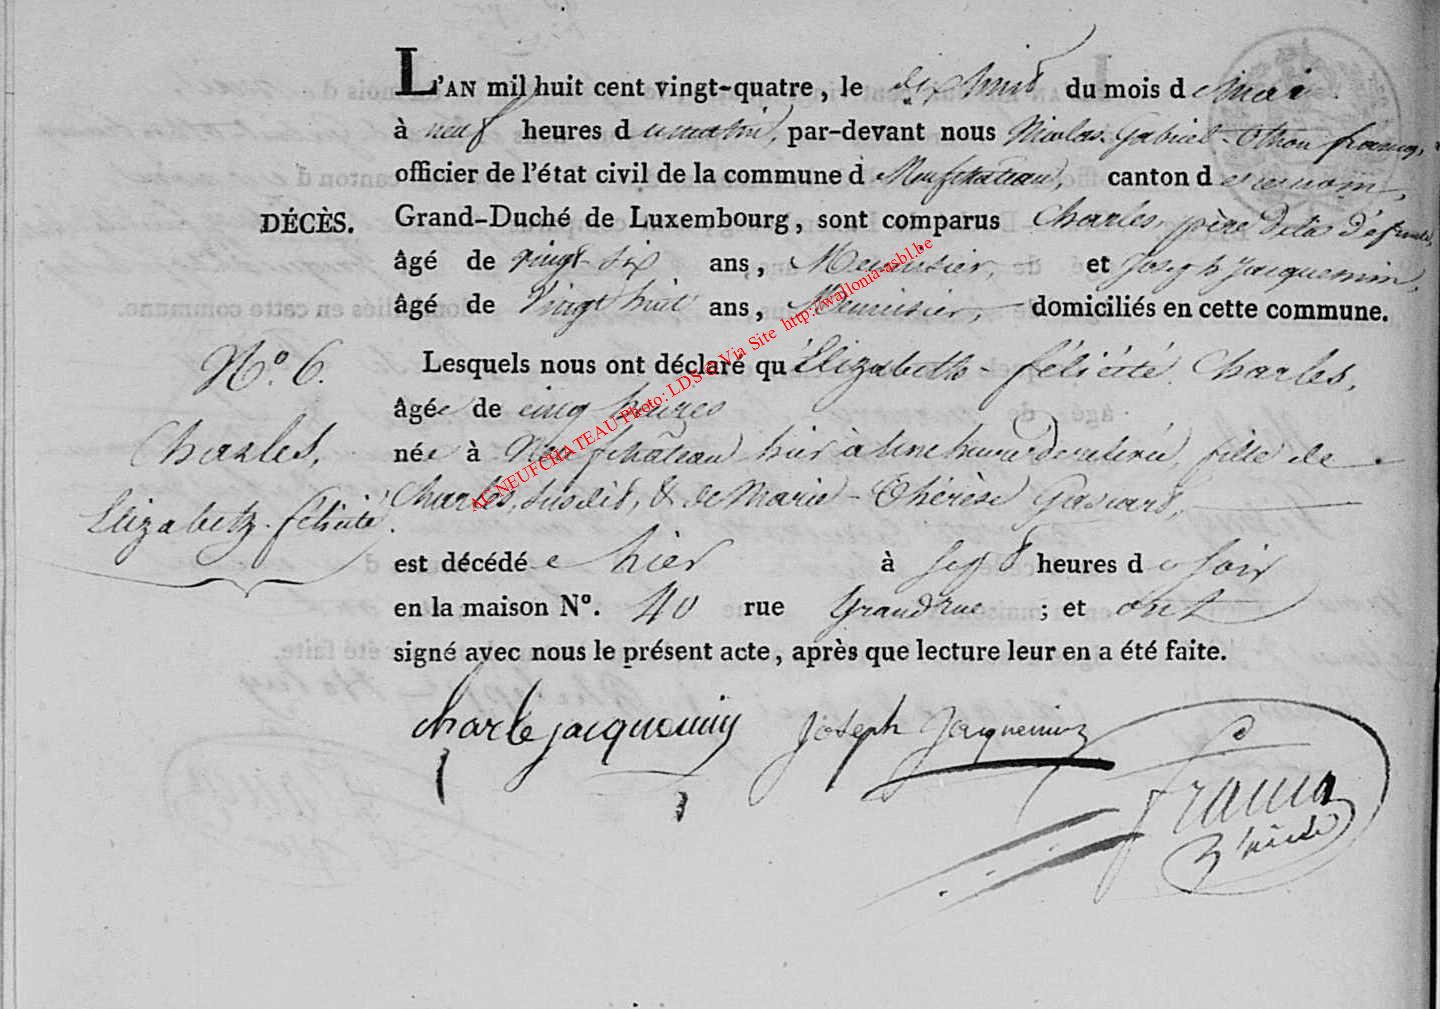 L'AN mil huit cent vingt-quatre, le dix huit du mois de mai
à neuf heures du matin, par-devant nous Nicolas-Gabriel-Othon
officier de l'état civil de la commune d Neufchateau, canton de ce nom,
DÉCÈS. Grand-Duché de Luxembourg, sont comparus Charles, père de la défunte,
âgé de vingt-six ans, Menuisier, et Joseph Jacquemin,
âgé de vingt huit ans, Menuisier, domiciliés en cette commune.
N.º 6. Lesquels nous ont déclaré qu'Elizabeth-félicité Charles,
âgée de cinq heures
Charles, née à Neufchâteau hier à une heure de relevée, fille de
Elizabeth-félicité. Charles, susdit, & de Marie-Thérèse
est décédée hier à sept heures du soir
en la maison Nº. 40 rue Grandrue ; et ont
signé avec nous le présent acte, après que lecture leur en a été faite.
charle jacquemin Joseph Jacquemin
AC NEUFCHATEAU Photo: LDS © Via Site http://wallonia-asbl.be